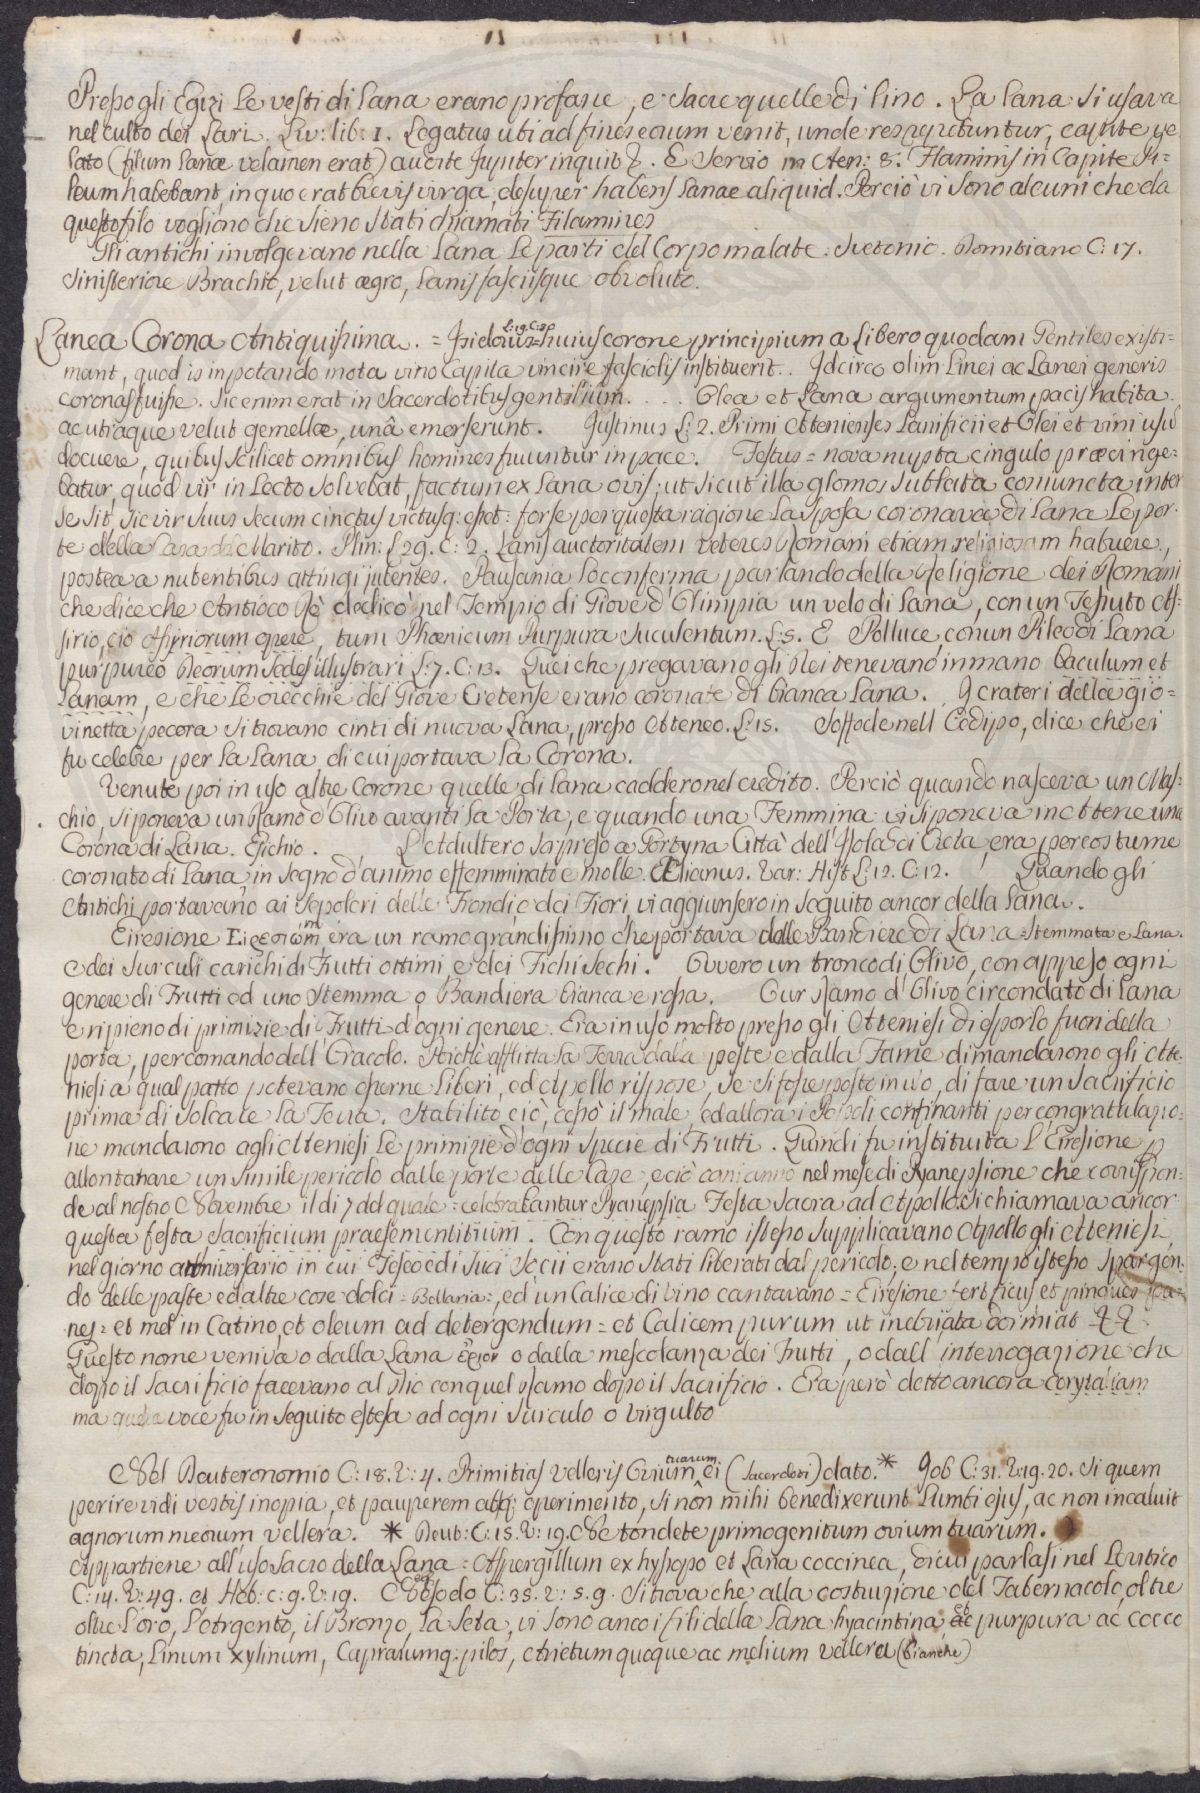 Presso gli Egizi Le vesti di Lana erano profane, e Sacre quelle di lino. La Lana si usava
nel culto dei Lari. Liv: lib: 1. Legatus ubi ad fines eorum venit, unde res repetuntur, capite ve
lato (filum lanæ velamen erat) audite Jupiter inquit &. E Servio in Æen: 8. Flaminis in Capite Pi-
leum habebant, in quo erat brevis virga, desuper habens Lanae aliquid. Perciò vi sono alcuni che da
questo filo vogliono che sieno stati chiamati Filamines
Gli antichi involgevano nella Lana Le parti del Corpo malate: Svetonio. Domitiano C: 17.
Sinisteriore Brachio, velut ægro, lanis fasciisque obvoluto.
Lanea Corona Antiquissima. = Isidorus L: 19. C: 30 = huius corone principium a Libero quodam Gentiles existi=
mant, quod is in potando mota vino Capita vincire fasciolis instituerit.. Idcirco olim Linei ac Lanei generis
coronas fuisse. Sic enim erat in Sacerdotibus gentilium. . . . Olea et Lana argumentum pacis habita
ac utraque velut gemellæ, unâ emerserunt. Justinus L: 2. Primi Athenienses Lanificii et Olei et vini usū
docuere, quibus scilicet omnibus homines fruuntur in pace. Festus = nova nupta cingulo præcinge=
batur, quod vir in Lecto solvebat, factum ex lana ovis, ut sicut illa glomos sublata coniuncta inter
se sit, sic vir suus secum cinctus victusq: esset: forse per questa ragione La Sposa coronava di Lana Le por-
te della Casa del Marito. Plin: L 29. C: 2. Lanis auctoritatem veteres Romani etiam religiosam habuere,
postea a nubentibus attingi jubentes. Pausania lo conferma parlando della Religione dei Romani
che dice che Antioco Rè dedicò nel Tempio di Giove d'Olimpia un velo di lana, con un Tessuto As-
sirio, cio Assyriorum opere, tum Phœnicum Purpura suculentum. L: 5. E Polluce, con un Pileo di Lana
purpureo Deorum Sedes illustrari L: 7. C: 13. Quei che pregavano gli Dei tenevano in mano baculum et
Lanam, e che Le orecchie del Giove Cretense erano coronate di bianca Lana. I crateri della gio=
vinetta pecora si trovano cinti di nuova Lana, presso Ateneo. L: 15. Soffocle nell Œdipo, dice che ei
fu celebre per la Lana, di cui portava la Corona.
Venute poi in uso altre Corone quelle di Lana caddero nel credito. Perciò quando nasceva un Mas-
chio, si poneva un Ramo d'Olivo avanti la Porta, e quando una Femmina vi si poneva in Attene una
Corona di Lana. Esichio. L'Adultero sorpreso a Gortyna Città dell'Isola di Creta, era per costume
coronato di Lana, in segno d'animo effemminato e molle. Ælianus. Var: Hist L: 12. C: 12. Quando gli
Antichi portavano ai Sepolcri delle Frondi e dei Fiori, vi aggiunsero in seguito ancor della Lana.
Eiresione Ειρεσιώνη era un ramo grandissimo che portava delle Bandiere di Lana = Stemmata e Lana.
e dei surculi carichi di Frutti ottimi, e dei Fichi secchi. Ovvero un tronco di Olivo, con appeso ogni
genere di Frutti ed uno Stemma o Bandiera bianca e rossa. Our Ramo d'Olivo circondato di Lana
e ripieno di primizie di Frutti d'ogni genere. Era in uso molto presso gli Atteniesi di esporlo fuori della
porta, per comando dell'Oracolo. Poichè afflitta la Terra dalla peste e dalla Fame dimandarono gli Atte-
niesi a qual patto potevano esserne liberi, ed Apollo rispose, se si fosse posto in uso, di fare un Sacrificio
prima di solcare la Terra. Stabilito ciò, cessò il male, ed allora i Popoli confinanti per congratulazio-
ne mandarono agli Atteniesi Le primizie d'ogni specie di Frutti. Quindi fu instituita L'Eiresione p
allontanare un simile pericolo dalle porte delle Case, e ciò ogni anno nel mese di Pyanepsione che corrispon-
de al nostro Novembre il di 7 del quale = celebrabantur Pyanepsia Festa Sacra ad Apollo. Si chiamava ancor
questa festa Sacrificium praesementitium. Con questo ramo istesso supplicavano Apollo gli Atteniesi
nel giorno anniversario in cui Teseo ed i suci Socii erano stati liberati dal pericolo; e nel tempo istesso spargen-
do delle paste ed altre cose dolci = Bellaria =, ed un Calice di vino cantavano = Eiresione fert ficus et pingues pa=
nes = et mel in Catino, et oleum ad detergendum = et Calicem purum ut inebriata dormiat &&.
Questo nome veniva o dalla Lana ἔριον o dalla mescolanza dei Frutti, o dall'interrogazione che
dopo il Sacrificio facevano al Dio con quel Ramo dopo il Sacrificio. Era però detto ancora corytaliam
ma questa voce fu in seguito estesa ad ogni surculo o virgulto
Nel Deuteronomio C: 18. V: 4. Primitias velleris Ovium tuarum ei (Sacerdoti) dato. * Iob C: 31. V: 19. 20. Si quem
perire vidi vestis inopia, et pauperem absq: operimento, si nôn mihi benedixerunt Lumbi ejus, ac non incaluit
agnorum meorum vellera. * Deut: C: 15. V: 19. Ne tondete primogenitum ovium tuarum.
Appartiene all'uso Sacro della Lana = Aspergillum ex hysopo et Lana coccinea, di cui parlasi nel Levitico
C: 14. V: 49. et Heb: c: 9. V: 19. Nell'Esodo C: 35. v: 5. 9. Si trova che alla costruzione del Tabernacolo, oltre
oltre L'oro, L'Argento, il Bronzo, La Seta, vi sono anco i fili della Lana hyacintina, et purpura ac cocco
tincta, Linum xylinum, Caprarumq: pilos, Arietum quoque ac melium vellera (bianche)